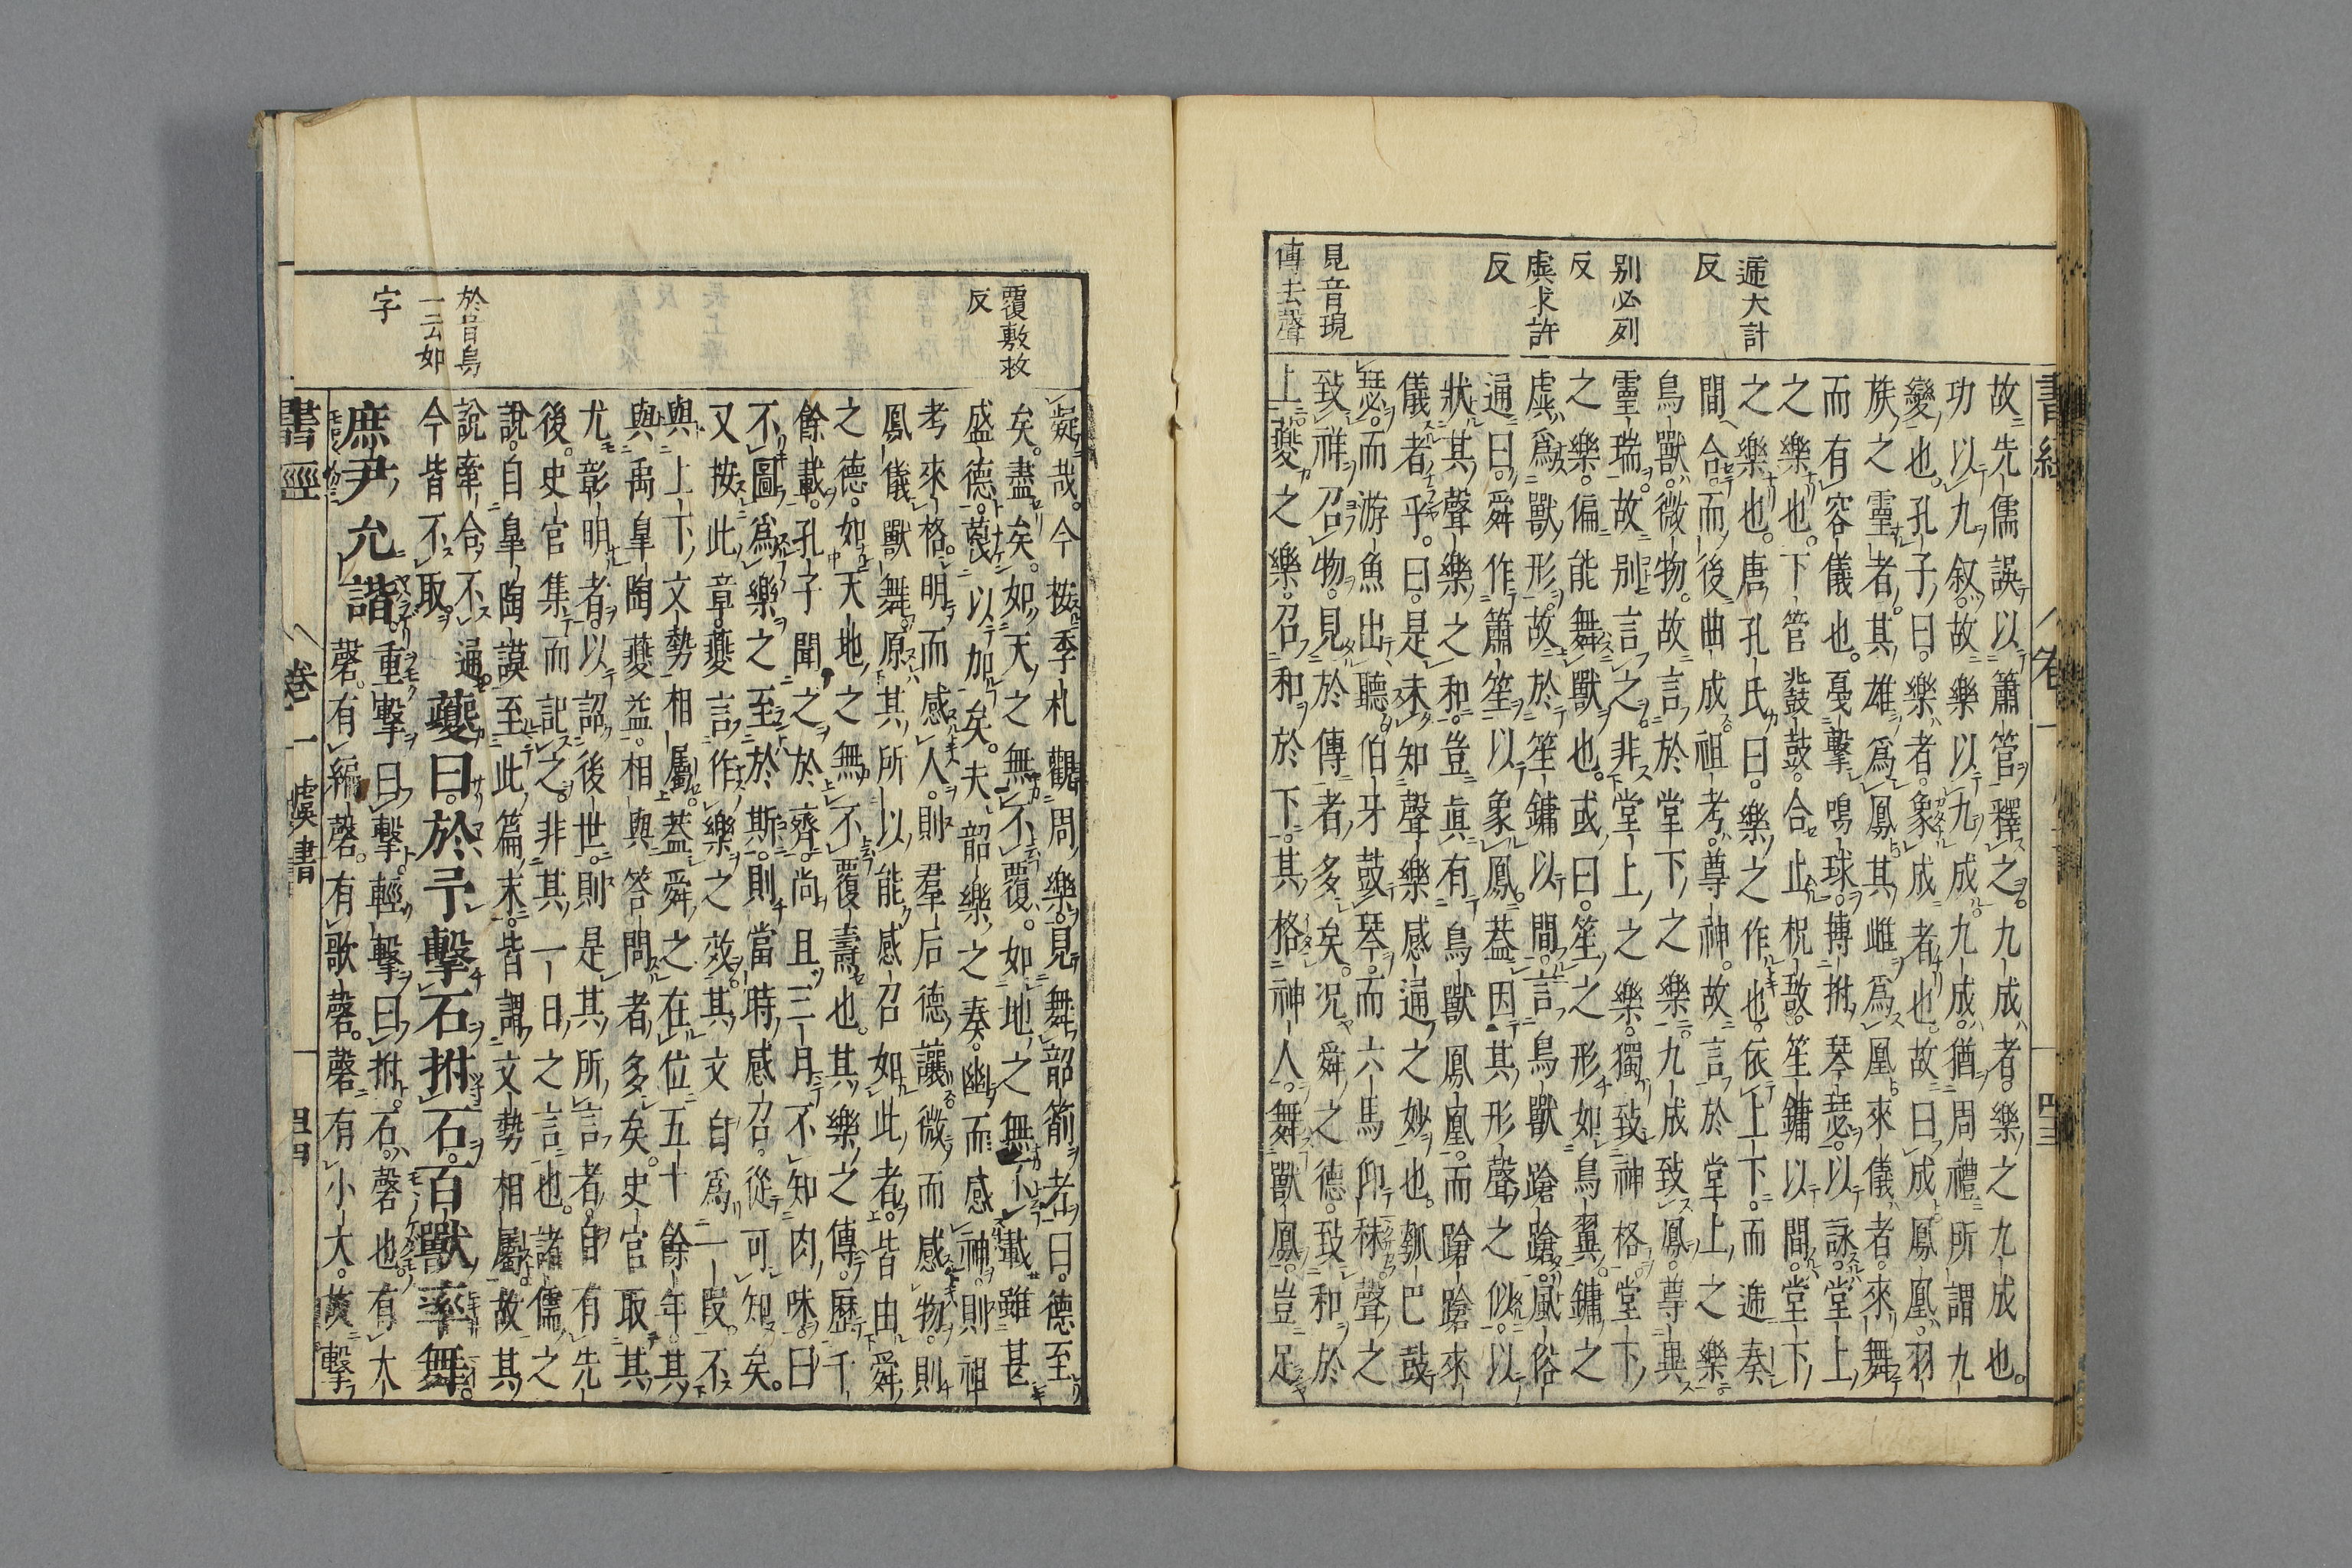 遞大計
反
別必列
反
虡求許
反
見音現
傳去聲
書經 卷一 四三
故先儒誤以簫管釋之。九成者。樂之九成也。
功以九叙。故樂以九成。九成。猶周禮所謂九
變也。孔子曰。樂者。象成者也。故曰成。鳳凰。羽
族之靈者。其雄爲鳳。其雌爲凰。來儀者。來舞
而有容儀也。戛擊鳴球。搏拊琴瑟。以詠。堂上
之樂也。下管鼗鼓。合止柷敔。笙鏞以間。堂下
之樂也。唐孔氏曰。樂之作也。依上下。而遞奏
間合。而後曲成。祖考。尊神。故言於堂上之樂。
鳥獸。微物。故言於堂下之樂。九成致鳳。尊異
靈瑞。故別言之。非堂上之樂。獨致神格。堂下
之樂。偏能舞獸也。或曰。笙之形如鳥翼。鏞之
虡爲獸形。故於笙鏞以間。言鳥獸蹌蹌。風俗
通曰。舜作簫笙以象鳳。蓋因其形聲之似。以
狀其聲樂之和。豈眞有鳥獸鳳凰。而蹌蹌來
儀者乎。曰。是未知聲樂感通之妙也。瓠巴鼓
瑟。而游魚出聽。伯牙鼓琴。而六馬仰秣。聲之
致祥召物。見於傳者多矣。況舜之德。致和於
上。夔之樂。召和於下。其格神人。舞獸鳳。豈足
覆敷救
反
於音烏
一二如
字
疑哉。今按季札觀周樂。見舞韶箾者。曰。德至
矣。盡矣。如天之無不覆。如地之無不載。雖甚
盛德。蔑以加矣。夫韶樂之奏。幽而感神。則祖
考來格。明而感人。則羣后德讓。微而感物。則
鳳儀獸舞。原其所以能感召如此者。皆由舜
之德。如天地之無不覆燾也。其樂之傳。歷千
餘載。孔子聞之於齊。尚且三月不知肉味。曰
不圖爲樂之至於斯。則當時感召。從可知矣。
又按此章。夔言作樂之效。其文自爲一段。不
與上下文勢相屬。蓋舜之在位五十餘年。其
與禹皐陶夔益。相與答問者多矣。史官取其
尤彰明者。以詔後世。則是其所言者。自有先
後。史官集而記之。非其一日之言也。諸儒之
說。自皐陶謨至此篇末。皆謂文勢相屬。故其
說牽合不通
今皆不取。 夔曰。於予擊石拊石。百獸率舞
庶尹允諧。重擊曰擊。輕擊曰拊。石。磬也。有大
磬。有編磬。有歌磬。磬有小大。故擊
書經 卷一 虞書 四四